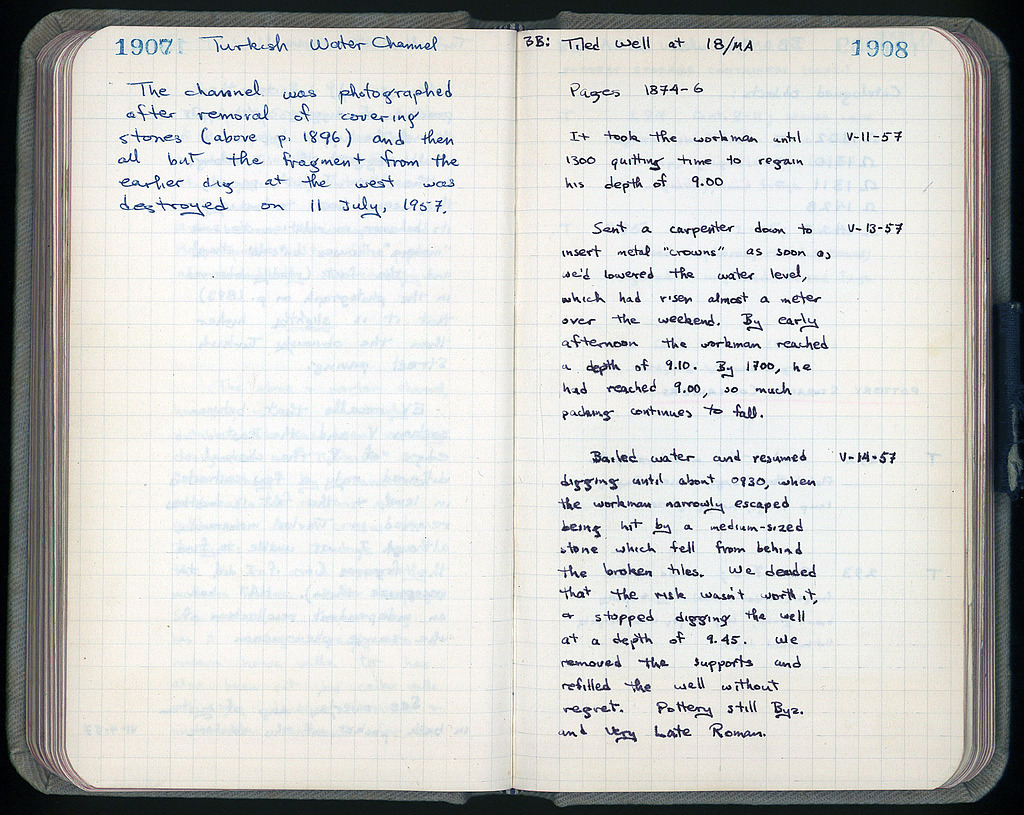 1907 Turkish Water Channel
The channel was photographed
after removal of covering
stones (above p. 1896) and then
all but the fragment from the
earlier dig at the west was
destroyed on 11 July, 1957.
3B: Tiled Well at 18/MA 1908
Pages 1874-6
It took the workman until V-11-57
1300 quitting time to regain
his depth of 9.00
Sent a carpenter down to V-13-57
insert metal "crowns" as soon as
we'd lowered the water level,
which had risen almost a meter
over the weekend. By early
afternoon the workman reached
a depth of 9.10. By 1700, he
had reached 9.00, so much
packing continues to fall.
Bailed water and resumed V-14-57
digging until about 0930, when
the workman narrowly escaped
being hit by a medium-sized
stone which fell from behind
the broken tiles. We decided
that the risk wasn't worth it,
& stopped digging the well
at a depth of 9.45. We
removed the supports and
refilled the well without
regret. Pottery still Byz.
and very Late Roman.